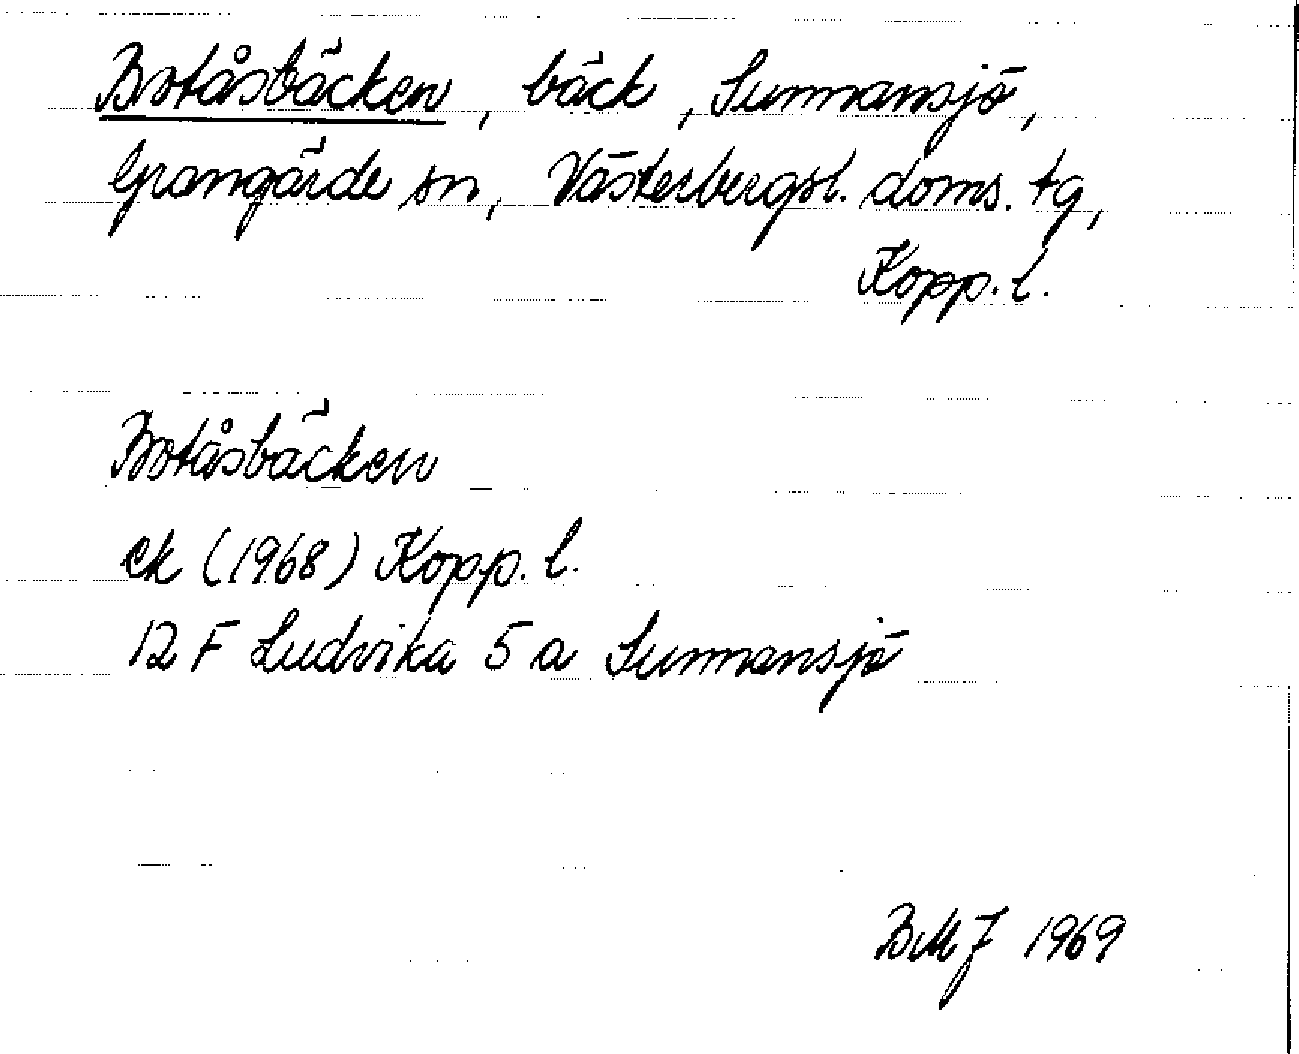 Botåsbäcken, bäck, Sunnansjö,
Grangärde sn, Västerbergsl. doms. tg,
Kopp. l.
Botåsbäcken
ek (1968) Kopp. l.
12 F Ludvika 5 a Sunnansjö
BMJ 1969